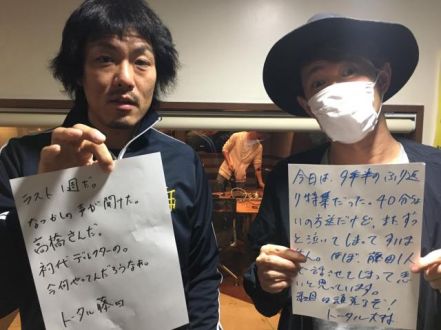 ラスト1週だ。
なつかしの声が聞けた。
高橋さんだ。
初代ディレクターの。
今何やってんだろうなぁ。
トータル藤田
今日は、9年半のふり返
り特集だった。40分くら
いの方送だけど、まず
と泣いてしまってすいませ
ん。ほぼ、藤田1人
で話せてしまって悪
いと思っています。
来週は頑張るぞ!
トータル大村